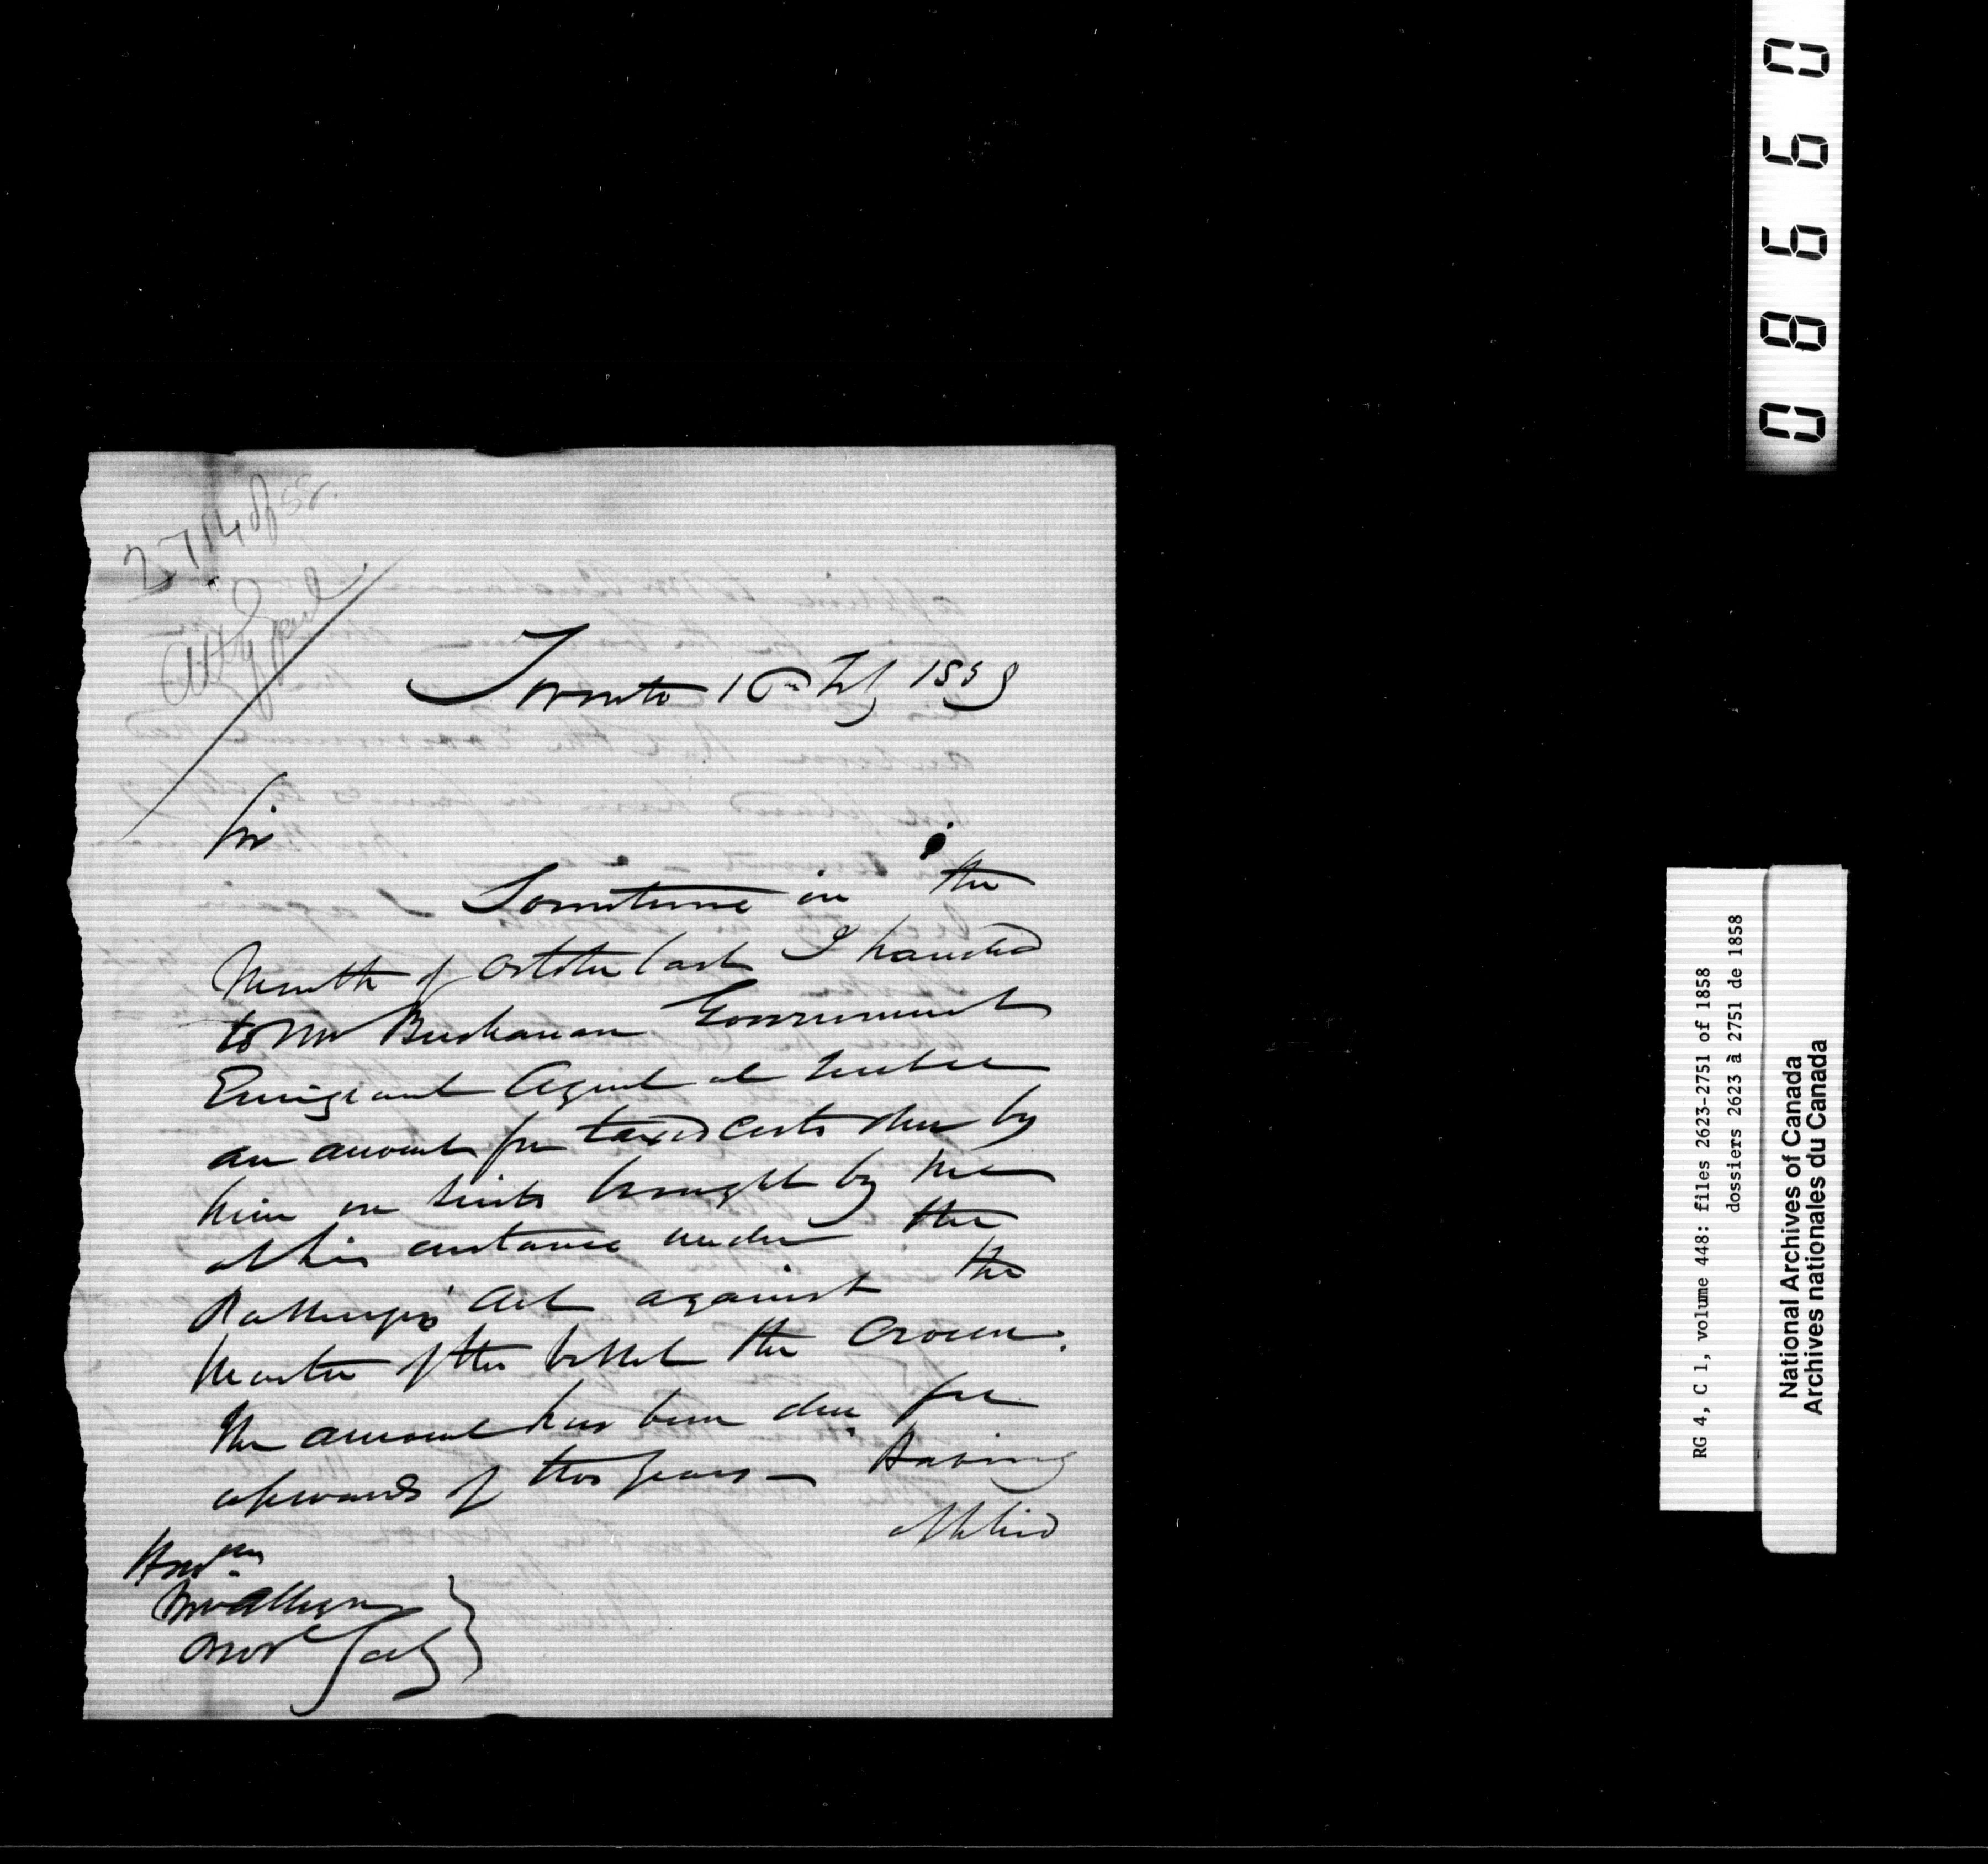 2714 of 58.
Atty Genl
Toronto 16th July 1858
Sir
Sometime in the
Month of October last I handed
to Mr Buchanan Government
Emigrant Agent at Quebec
an account for taxed costs due by
him on suits brought by me
at his instance under the
Passengers Act against the
Master of the vessel the
The amount has been due for
upwards of two years — Having
applied
Honble
Mr Alleyn
Provl Secty
08660
RG 4, C 1, volume 448: files 2623-2751 of 1858
dossiers 2623 à 2751 de 1858
National Archives of Canada
Archives nationales du Canada